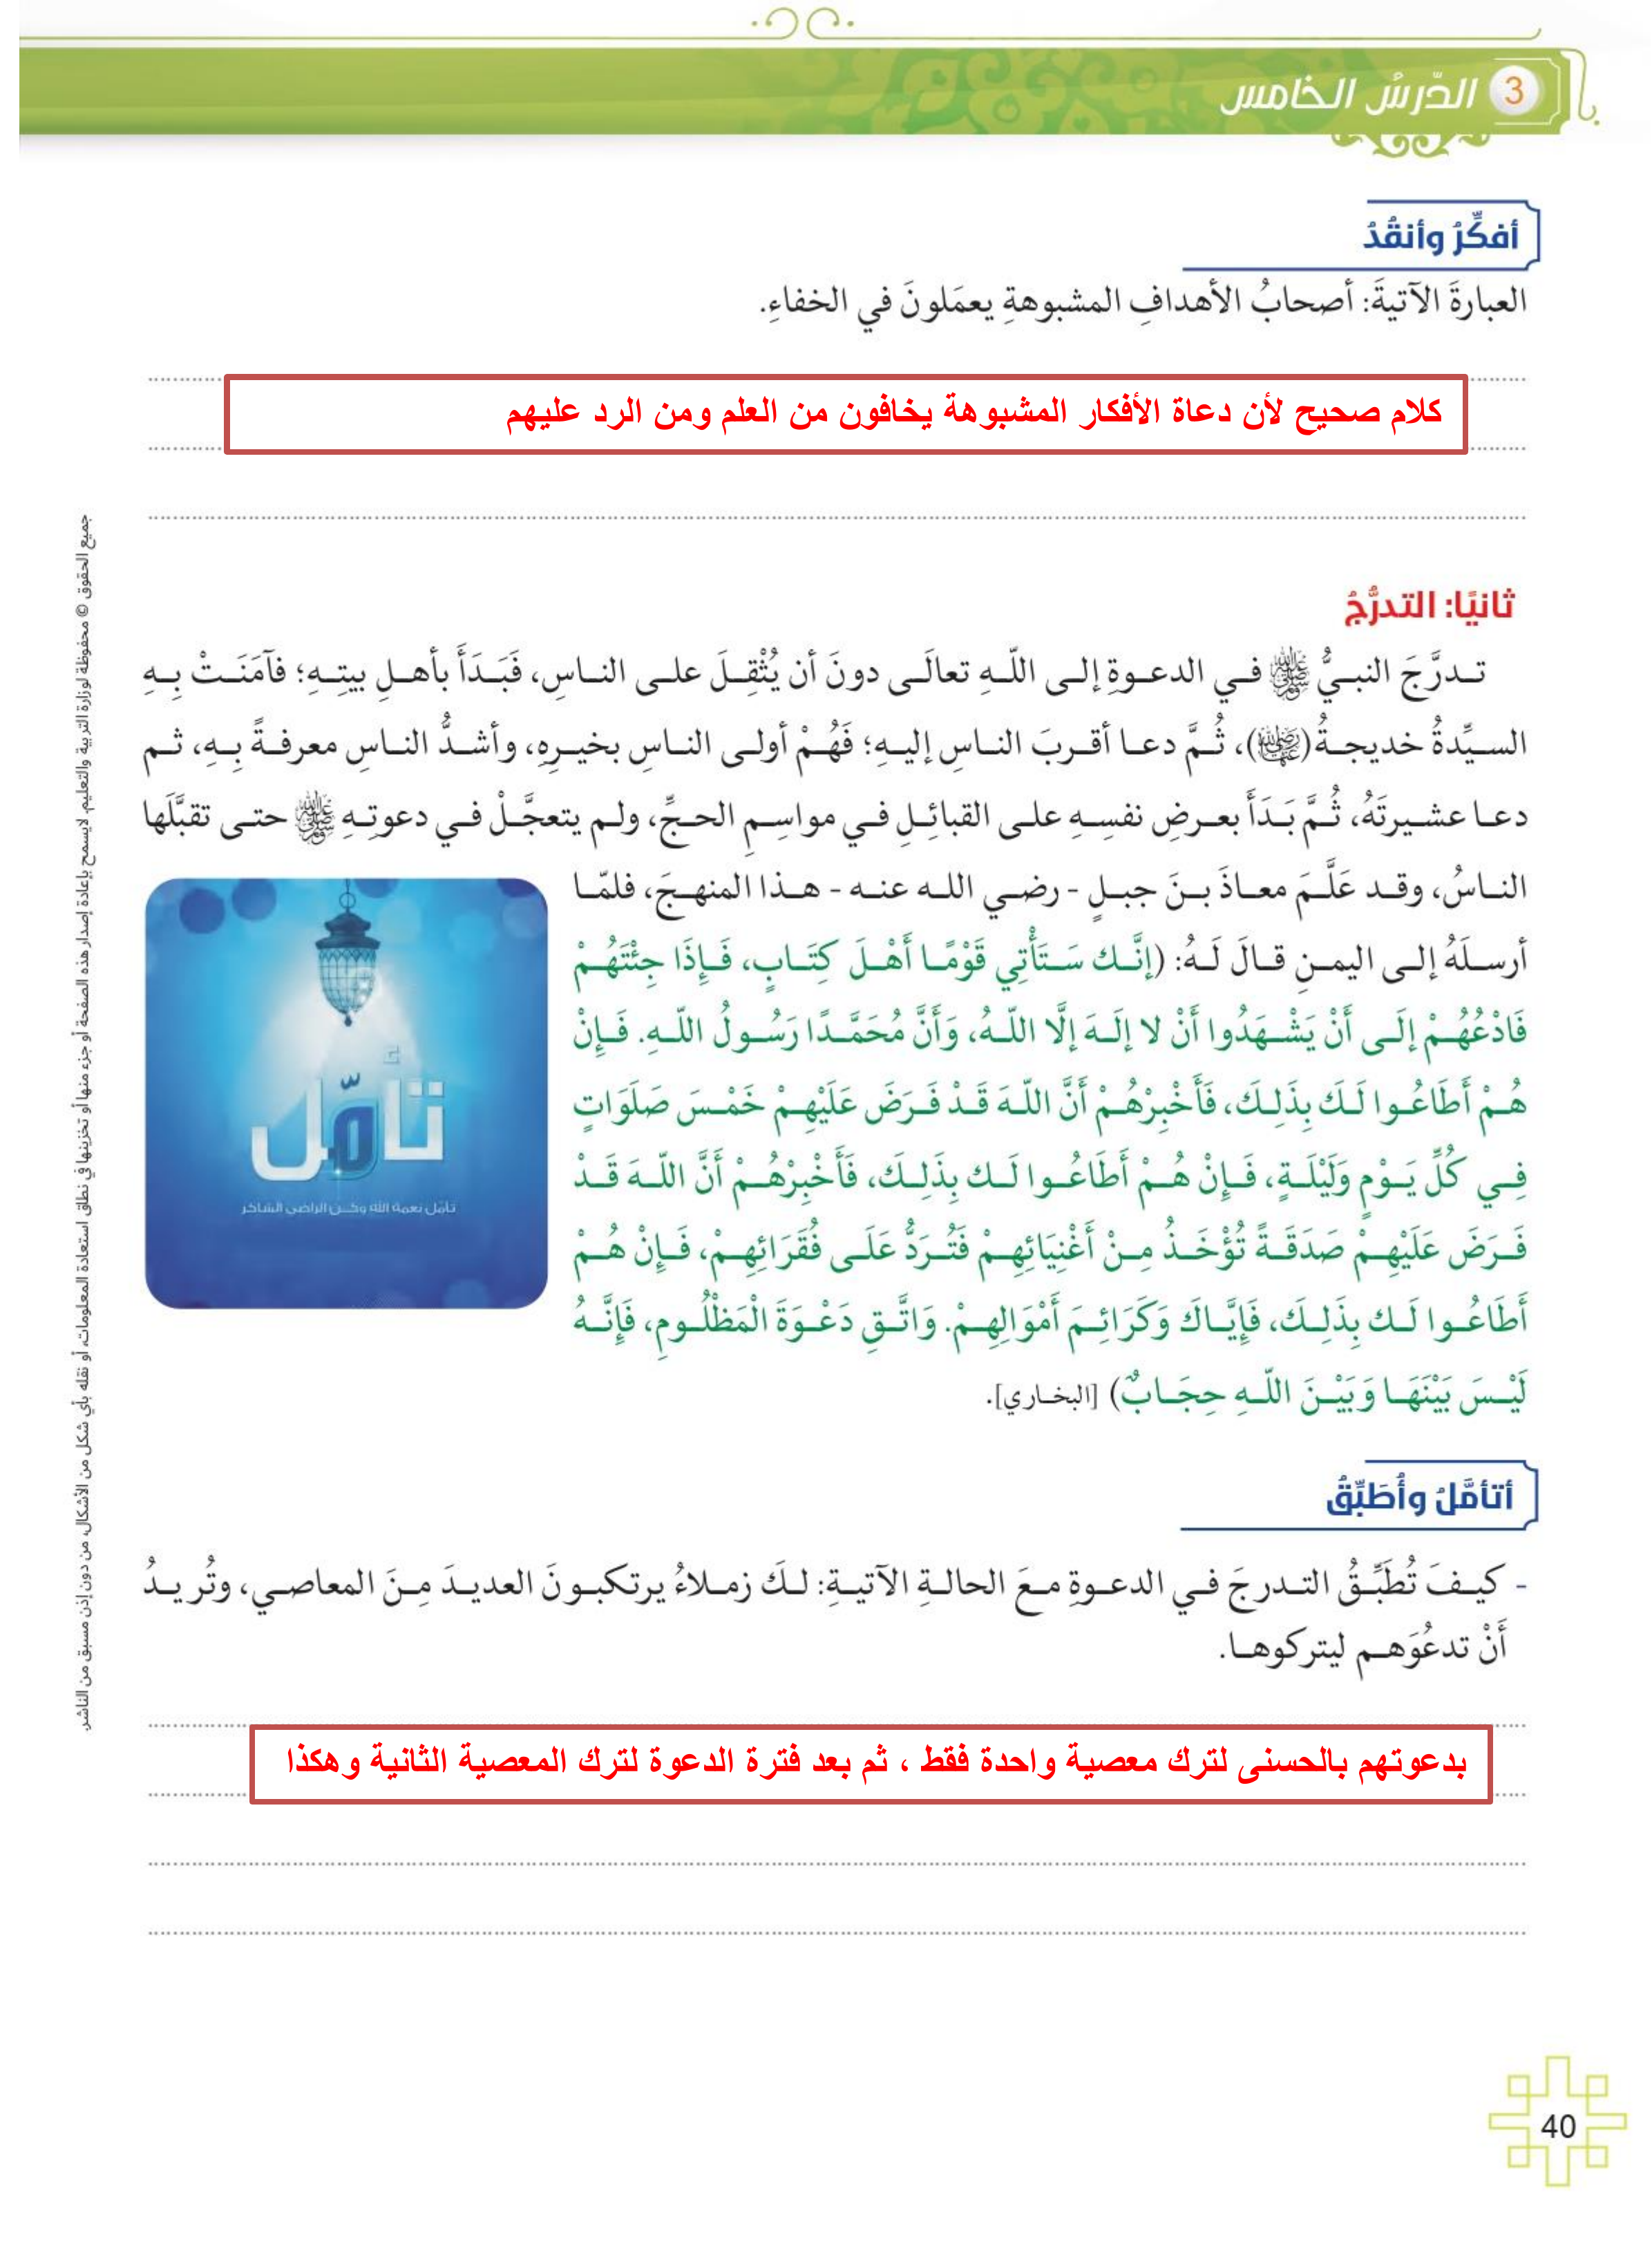 3 الدّرسُ الخامس
أفكِّرُ وأنقُدُ
العبارةَ الآتيةَ: أصحابُ الأهدافِ المشبوهةِ يعمَلونَ في الخفاءِ.
كلام صحيح لأن دعاة الأفكار المشبوهة يخافون من العلم ومن الرد عليهم
ثانيًا: التدرُّجُ
تـدرَّجَ النبيُّ ﷺ فـي الدعـوةِ إلـى اللّـهِ تعالَـى دونَ أن يُثْقِـلَ علـى النـاسِ، فَبَـدَأَ بأهـلِ بيتِـهِ؛ فآمَنَـتْ بِـهِ
السـيِّدةُ خديجـةُ(رضي الله عنها)، ثُـمَّ دعـا أقـربَ النـاسِ إليـهِ؛ فَهُـمْ أولـى النـاسِ بخيـرِهِ، وأشـدُّ النـاسِ معرفـةً بِـهِ، ثـم
دعـا عشـيرتَهُ، ثُـمَّ بَـدَأَ بعـرضِ نفسِـهِ علـى القبائِـلِ فـي مواسِـمِ الحـجِّ، ولـم يتعجَّـلْ فـي دعوتِـهِ ﷺ حتـى تقبَّلَها
النـاسُ، وقـد عَلَّـمَ معـاذَ بـنَ جبـلٍ - رضـي اللـه عنـه - هـذا المنهـجَ، فلمّـا
أرسـلَهُ إلـى اليمـنِ قـالَ لَـهُ: (إنَّـك سَـتَأْتِي قَوْمًـا أَهْـلَ كِتَـابٍ، فَـإِذَا جِئْتَهُـمْ
فَادْعُهُـمْ إلَـى أَنْ يَشْـهَدُوا أَنْ لا إلَـهَ إلَّا اللّـهُ، وَأَنَّ مُحَمَّـدًا رَسُـولُ اللّـهِ. فَـإِنْ
هُـمْ أَطَاعُـوا لَـكَ بِذَلِـكَ، فَأَخْبِرْهُـمْ أَنَّ اللّـهَ قَـدْ فَـرَضَ عَلَيْهِـمْ خَمْـسَ صَلَوَاتٍ
فِـي كُلِّ يَـوْمٍ وَلَيْلَـةٍ، فَـإِنْ هُـمْ أَطَاعُـوا لَـك بِذَلِـكَ، فَأَخْبِرْهُـمْ أَنَّ اللّـهَ قَـدْ
فَـرَضَ عَلَيْهِـمْ صَدَقَـةً تُؤْخَـذُ مِـنْ أَغْنِيَائِهِـمْ فَتُـرَدُّ عَلَـى فُقَرَائِهِـمْ، فَـإِنْ هُـمْ
أَطَاعُـوا لَـك بِذَلِـكَ، فَإِيَّـاكَ وَكَرَائِـمَ أَمْوَالِهِـمْ. وَاتَّـقِ دَعْـوَةَ الْمَظْلُـومِ، فَإِنَّـهُ
لَيْـسَ بَيْنَهَـا وَبَيْـنَ اللّـهِ حِجَـابٌ) [البخـاري].
تأمّل
تأمّل نعمة الله وكـن الراضي الشاكر
أتأمَّلُ وأُطَبِّقُ
- كيـفَ تُطَبِّـقُ التـدرجَ فـي الدعـوةِ مـعَ الحالـةِ الآتيـةِ: لـكَ زمـلاءُ يرتكبـونَ العديـدَ مِـنَ المعاصـي، وتُريـدُ
أَنْ تدعُوَهـم ليتركوهـا.
بدعوتهم بالحسنى لترك معصية واحدة فقط ، ثم بعد فترة الدعوة لترك المعصية الثانية وهكذا
جميع الحقوق © محفوظة لوزارة التربية والتعليم. لايسمح بإعادة إصدار هذه الصفحة أو جزء منها أو تخزينها في نطاق استعادة المعلومات، أو نقله بأي شكل من الأشكال، من دون إذن مسبق من الناشر.
40